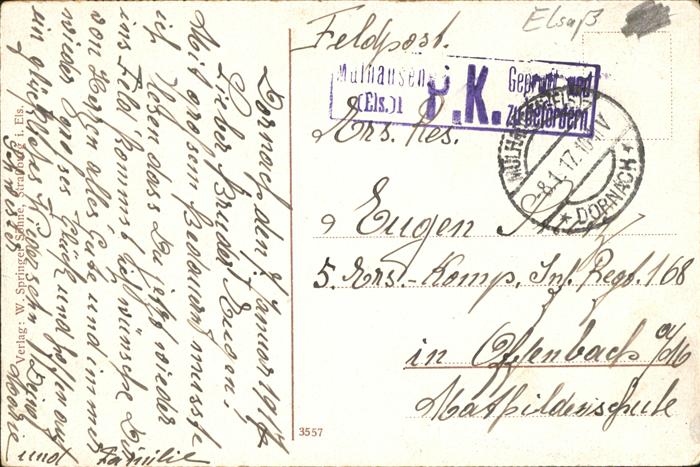 Elsaß
Feldpost.
Mülhausen
(Els.) 1
P.K.
Geprüft und
zu befördern
MÜLHAUSEN
-8.1.17.10-
V
* DORNACH *
Ers. Res.
Eugen
5. Ers.-Komp. Inf. Regt. 168
in Offenbach a/M
Mathildenschule
Dornach, den 7 Januar 1917
Lieber Bruder Eugen!
Mit grosem Bedauern musste
ich lesen dass Du jetzt wieder
ins Feld kommst. Ich wünsche Dir
von Herzen alles Gute und immer
wieder groses Glück und hoffen auf
ein glückliches Wiedersehn. Deine
Schwester Marie
und Familie
Verlag: W. Springer Söhne, Strassburg i. Els.
3557